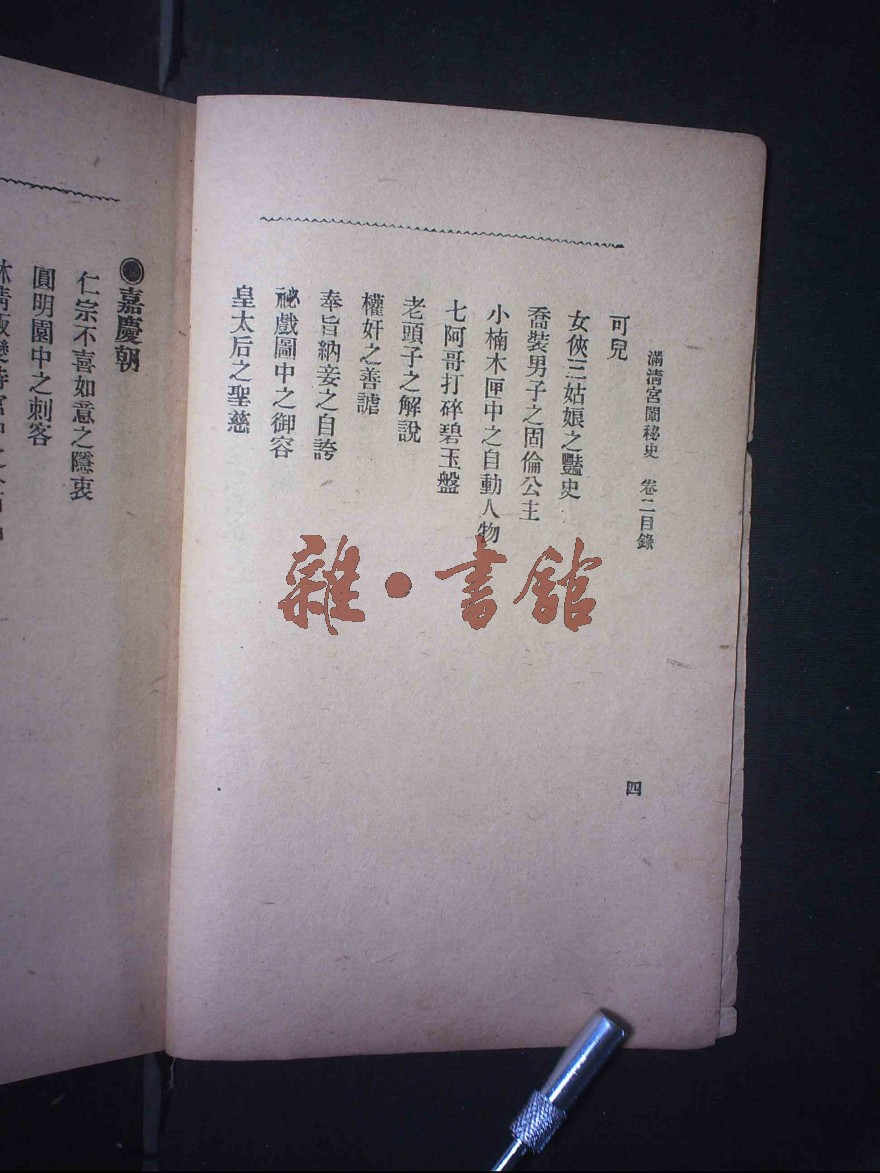 滿淸宮闈秘史　卷二目錄
四
可兒
女俠三姑娘之豔史
喬裝男子之固倫公主
小楠木匣中之自動人物
七阿哥打碎碧玉盤
老頭子之解說
權奸之善謔
奉旨納妾之自誇
祕戲圖中之御容
皇太后之聖慈
◉嘉慶朝
仁宗不喜如意之隱衷
圓明園中之刺客
雜·書館